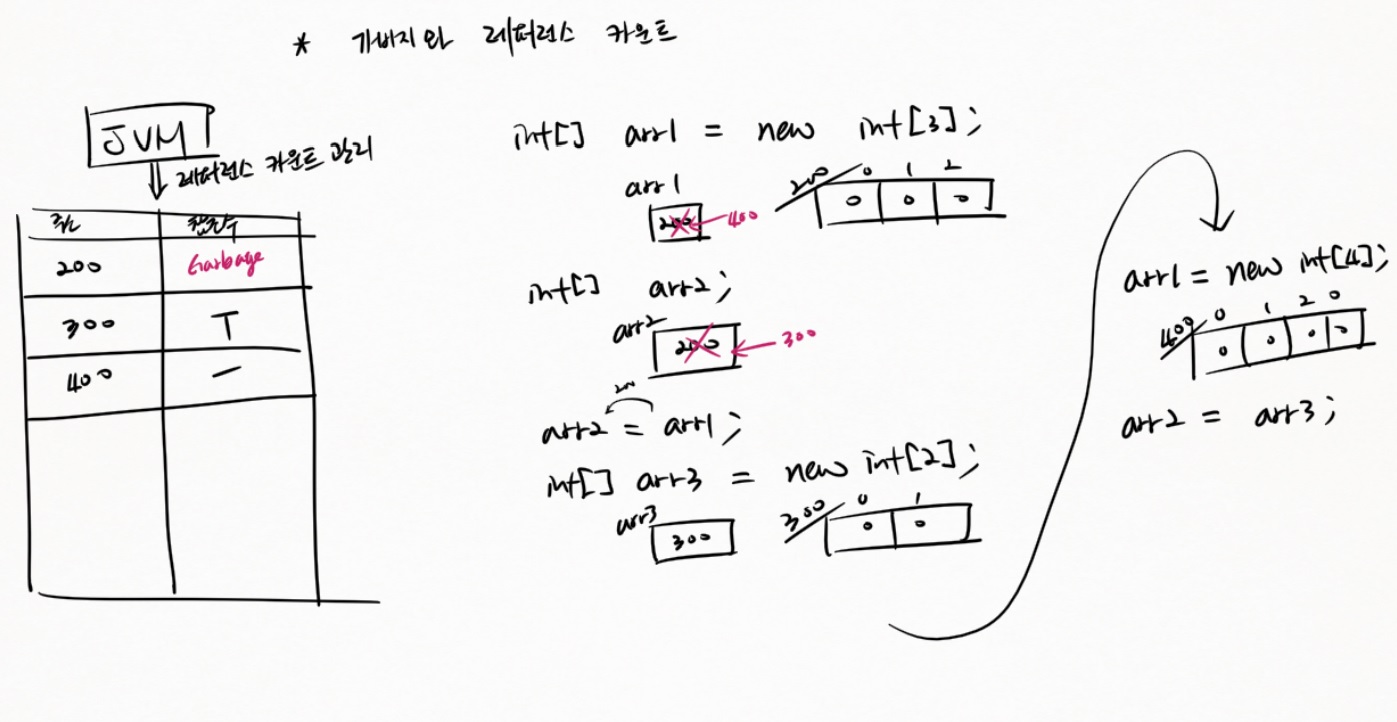 * 가비지와 레퍼런스 카운트
JVM
레퍼런스 카운트 관리
주소
200 Garbage
300 T
400 一
int[] arr1 = new int[3];
arr1
200 400
200 0 1 2
0 0 0
int[] arr2;
arr2
200 300
200
arr2 = arr1;
int[] arr3 = new int[2];
arr3
300
300 0 1
0 0
arr1 = new int[4];
400 0 1 2 0
0 0 0 0
arr2 = arr3;